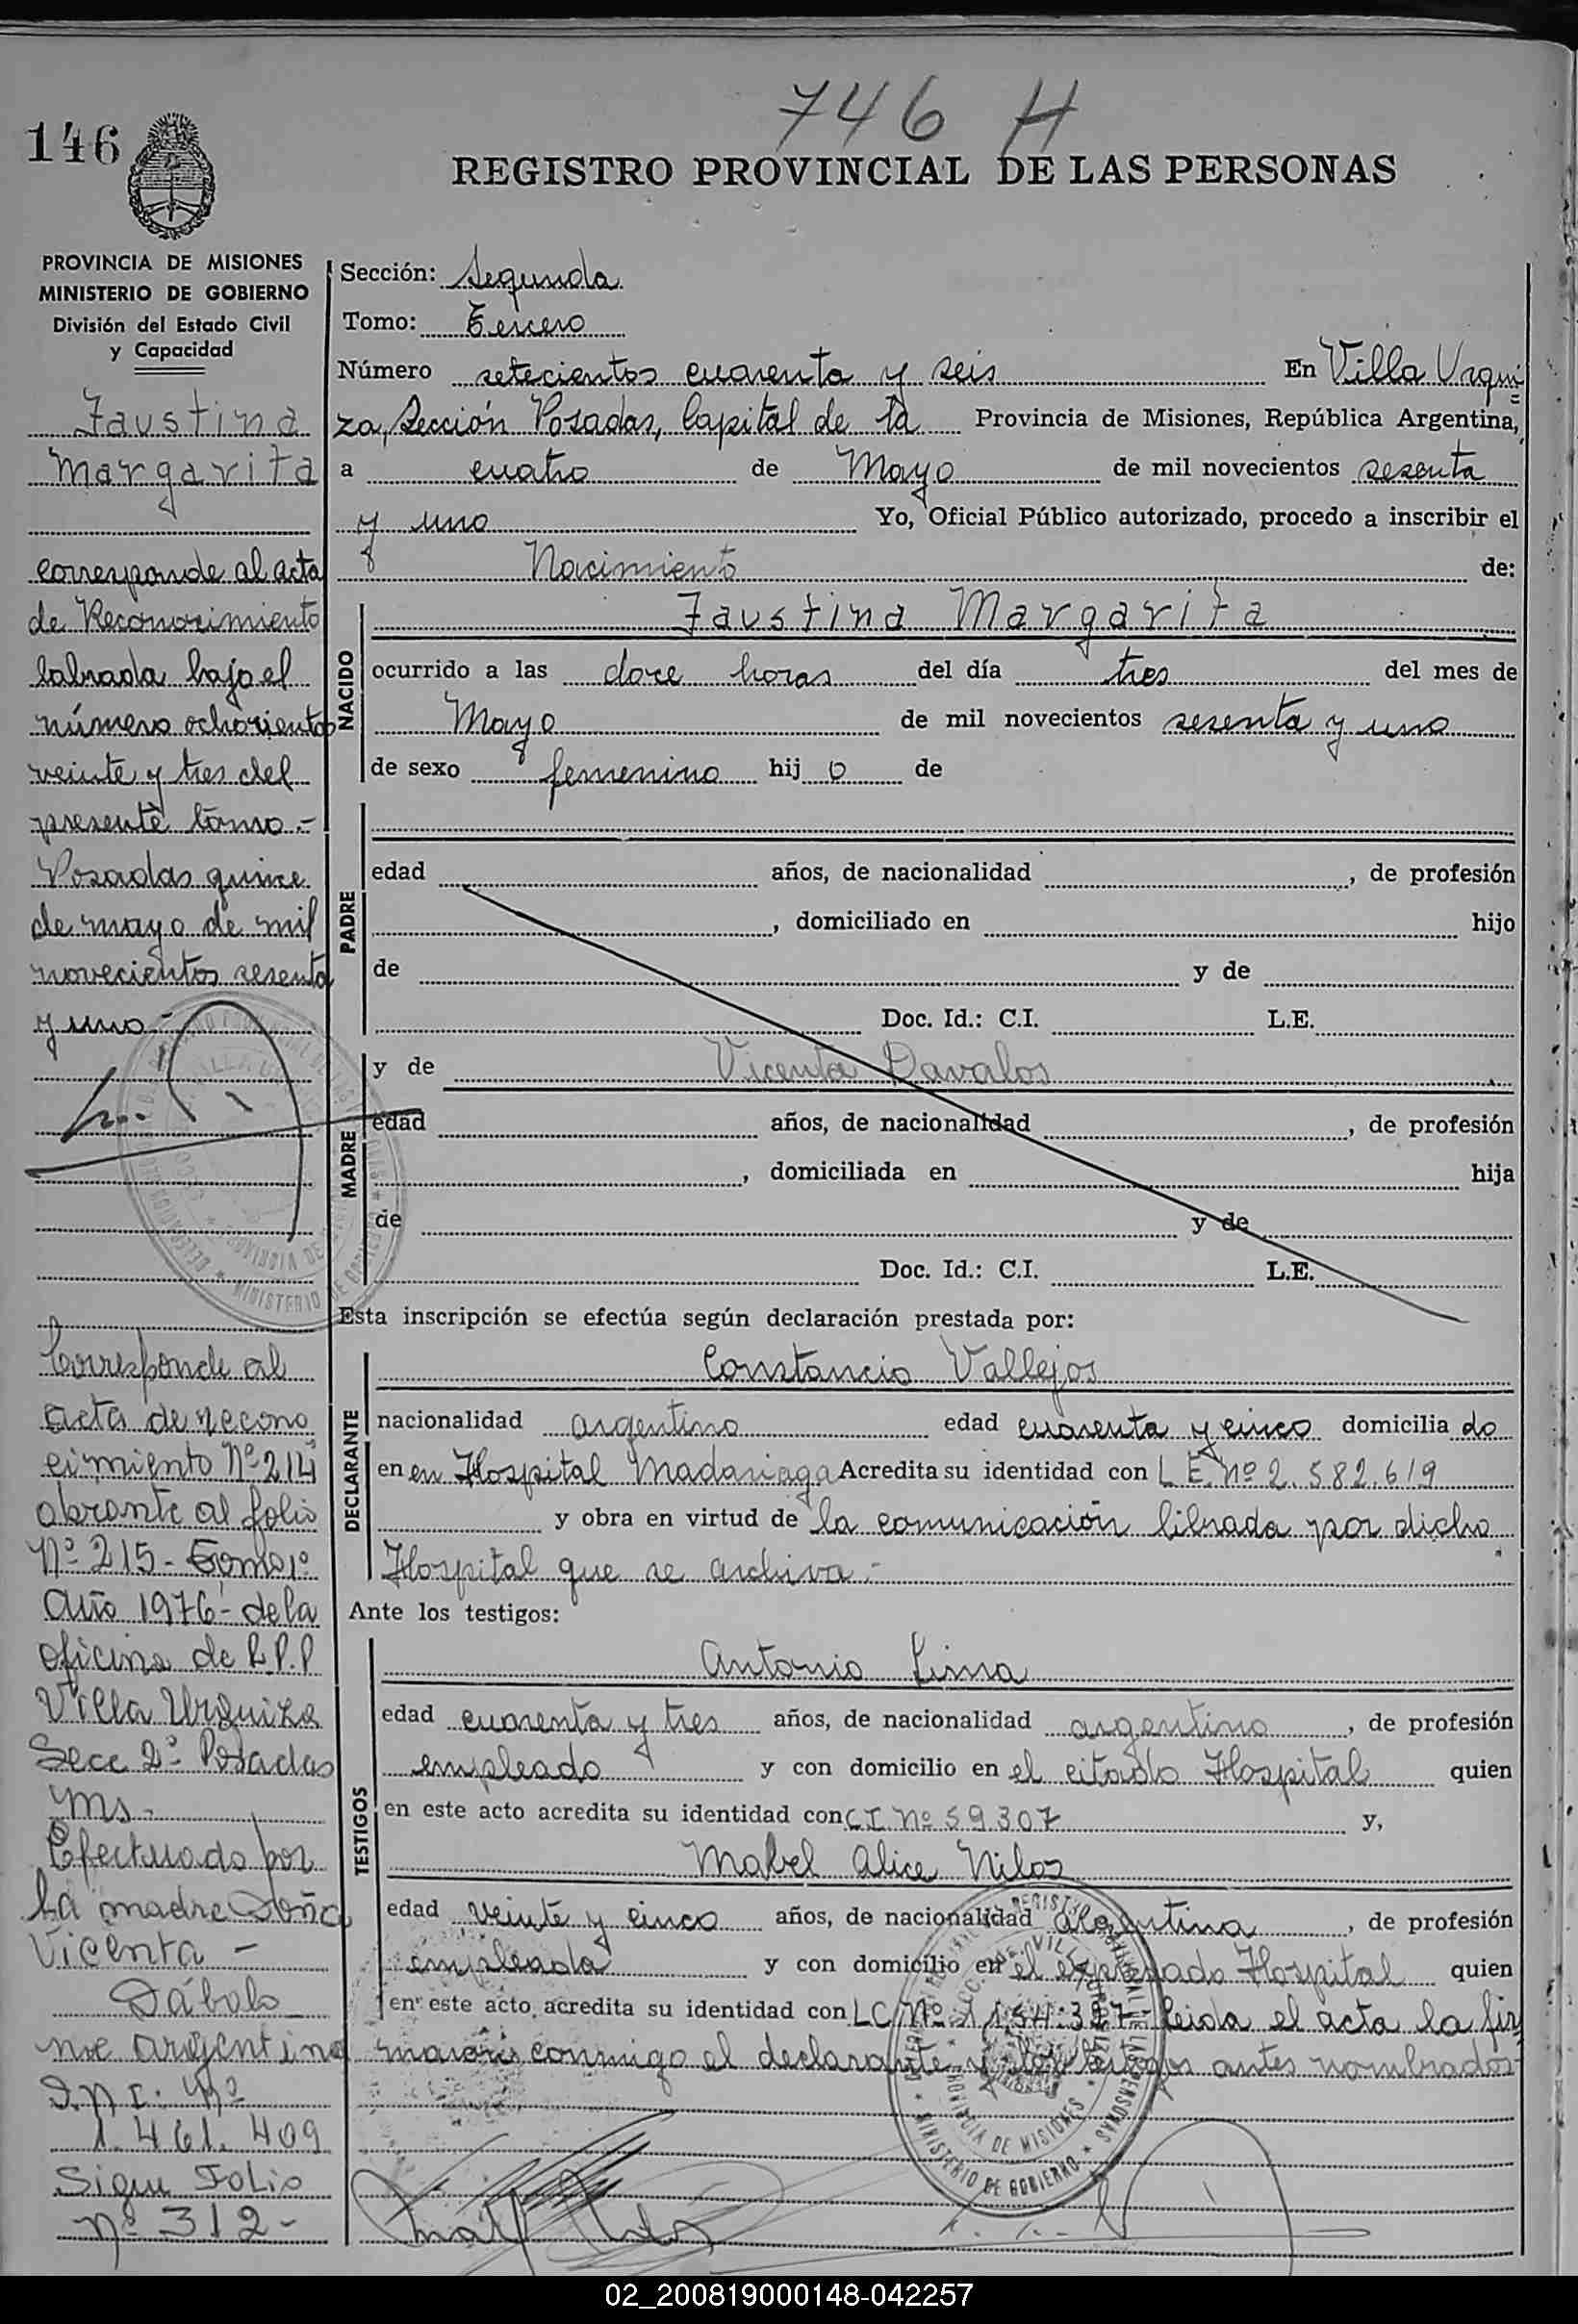 746 H
146
REGISTRO PROVINCIAL DE LAS PERSONAS
PROVINCIA DE MISIONES
MINISTERIO DE GOBIERNO
División del Estado Civil
y Capacidad
Faustina
Margarita
corresponde al acta
de Reconocimiento
labrada bajo el
número ochocientos
veinte y tres del
presente tomo.-
Posadas quince
de mayo de mil
novecientos sesenta
y uno-
Corresponde al
acta de recono
cimiento Nº 214
obrante al folio
Nº 215 - Tomo 1º
Año 1976 - de la
oficina de R.P.P
Villa Urquiza
Secc 2º Posadas
Ms.
Efectuado por
la madre Doña
Vicenta -
Dábolo
nac argentina
D.N.I. Nº
1.461.409
Sigue Folio
Nº 312-
Sección: Segunda
Tomo: Tercero
Número setecientos cuarenta y seis En Villa Urqui
za, Sección Posadas, Capital de la Provincia de Misiones, República Argentina,
a cuatro de Mayo de mil novecientos sesenta
y uno Yo, Oficial Público autorizado, procedo a inscribir el
Nacimiento de:
NACIDO
Faustina Margarita
ocurrido a las doce horas del día tres del mes de
Mayo de mil novecientos sesenta y uno
de sexo femenino hij o de
PADRE
edad años, de nacionalidad , de profesión
, domiciliado en hijo
de y de
Doc. Id.: C.I. L.E.
MADRE
y de Vicenta Davalos
edad años, de nacionalidad , de profesión
, domiciliada en hija
de y de
Doc. Id.: C.I. L.E.
Esta inscripción se efectúa según declaración prestada por:
DECLARANTE
Constancio Vallejos
nacionalidad argentino edad cuarenta y cinco domicilia do
en en Hospital Madariaga Acredita su identidad con L.E. Nº 2.582.619
y obra en virtud de la comunicación librada por dicho
Hospital que se archiva.-
Ante los testigos:
TESTIGOS
Antonio Lima
edad cuarenta y tres años, de nacionalidad argentino , de profesión
empleado y con domicilio en el citado Hospital quien
en este acto acredita su identidad con C.I. Nº 59.307 y,
Mabel Alice Nilos
edad veinte y cinco años, de nacionalidad argentina , de profesión
empleada y con domicilio en el expresado Hospital quien
en este acto acredita su identidad con LC Nº Leida el acta la fir
conmigo el declarante y los testigos antes nombrados
MINISTERIO DE GOBIERNO
PROVINCIA DE MISIONES
02_200819000148-042257